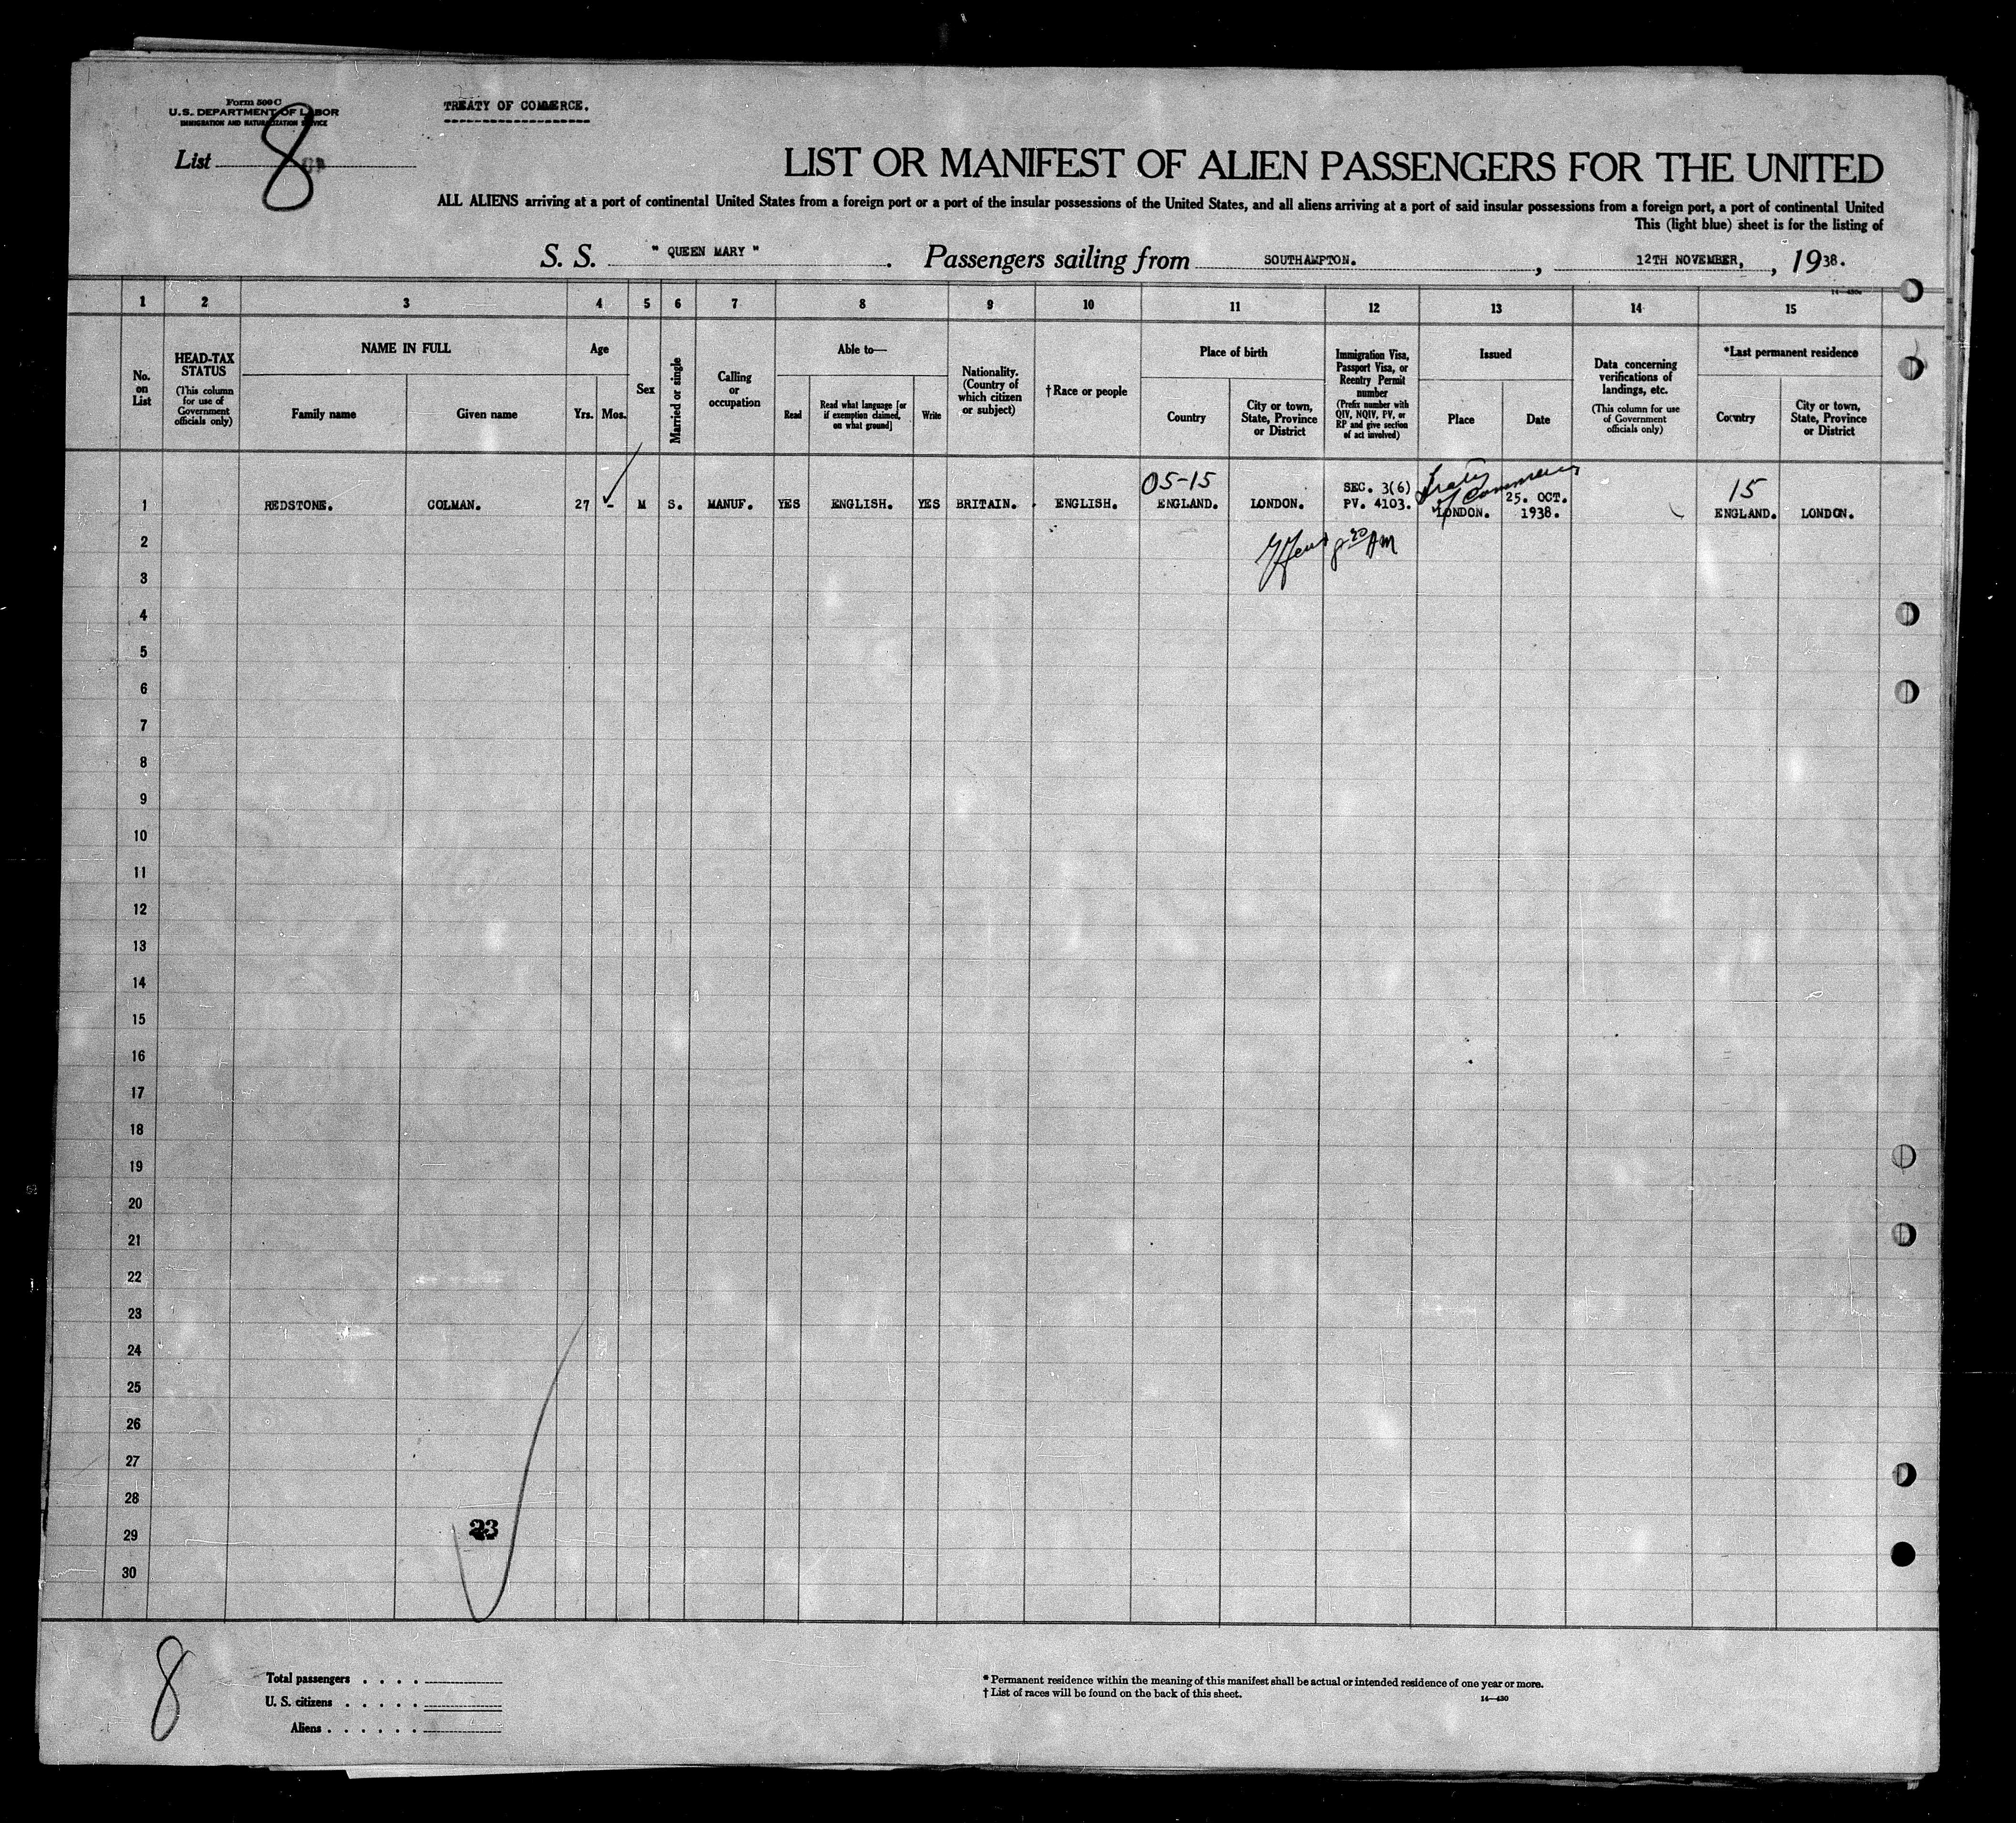 Form 500 C
U.S. DEPARTMENT OF LABOR
IMMIGRATION AND NATURALIZATION SERVICE
TREATY OF COMMERCE.
List 8
LIST OR MANIFEST OF ALIEN PASSENGERS FOR THE UNITED
ALL ALIENS arriving at a port of continental United States from a foreign port or a port of the insular possessions of the United States, and all aliens arriving at a port of said insular possessions from a foreign port, a port of continental United
This (light blue) sheet is for the listing of
S. S. " QUEEN MARY " . Passengers sailing from SOUTHAMPTON. , 12TH NOVEMBER, , 1938.
1 2 3 4 5 6 7 8 9 10 11 12 13 14 15
No. on List
HEAD-TAX STATUS
(This column for use of Government officials only)
NAME IN FULL
Family name
Given name
Age
Yrs. Mos.
Sex
Married or single
Calling or occupation
Able to—
Read
Read what language [or if exemption claimed, on what ground]
Write
Nationality. (Country of which citizen or subject)
† Race or people
Place of birth
Country
City or town, State, Province or District
Immigration Visa, Passport Visa, or Reentry Permit number
(Prefix number with QIV, NQIV, PV, or RP and give section of act involved)
Issued
Place
Date
Data concerning verifications of landings, etc.
(This column for use of Government officials only)
*Last permanent residence
Country
City or town, State, Province or District
05-15 SEC. 3(6) Treaty of Commerce 25. OCT. 15
1 REDSTONE. COLMAN. 27 - M S. MANUF. YES ENGLISH. YES BRITAIN. ENGLISH. ENGLAND. LONDON. PV. 4103. LONDON. 1938. ENGLAND. LONDON.
2 8 20 AM
3
4
5
6
7
8
9
10
11
12
13
14
15
16
17
18
19
20
21
22
23
24
25
26
27
28
29 23
30
8
Total passengers . . . .
U. S. citizens . . . . .
Aliens . . . . . .
* Permanent residence within the meaning of this manifest shall be actual or intended residence of one year or more.
† List of races will be found on the back of this sheet.
14—430